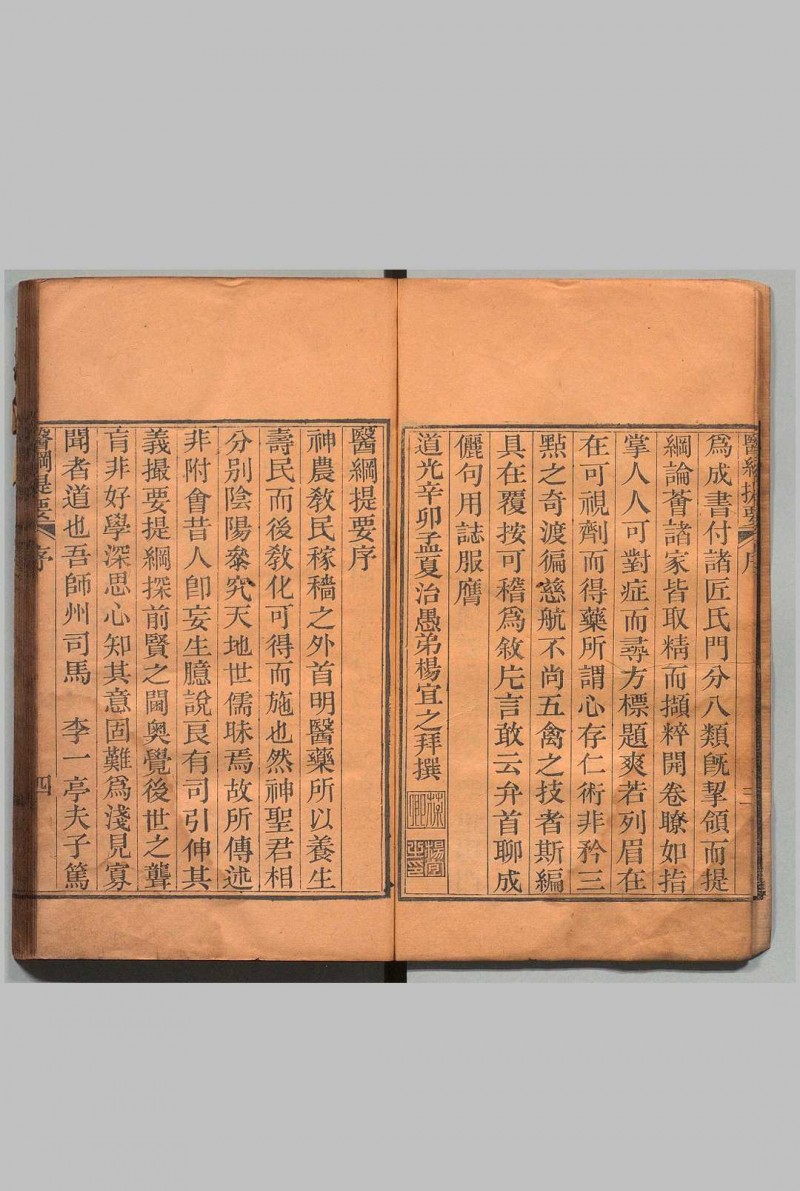 醫綱提要 序 三
爲成書付諸匠氏門分八類旣挈領而提
綱論薈諸家皆取精而擷粹開卷瞭如指
掌人人可對症而尋方標題爽若列眉在
在可視劑而得藥所謂心存仁術非矜三
㸃之奇渡徧慈航不尚五禽之技者斯編
具在覆按可稽爲敘片言敢云弁首聊成
儷句用誌服膺
道光辛卯孟夏治愚弟楊宜之拜撰
楊宜之印
醫綱提要序
神農敎民稼穡之外首明醫藥所以養生
壽民而後敎化可得而施也然神聖君相
分別陰陽叅究天地世儒昧焉故所傳述
非附會昔人卽妄生臆說良有司引伸其
義撮要提綱探前賢之閫奧覺後世之聾
肓非好學深思心知其意固難爲淺見寡
聞者道也吾師州司馬 李一亭夫子篤
醫綱提要 序 四